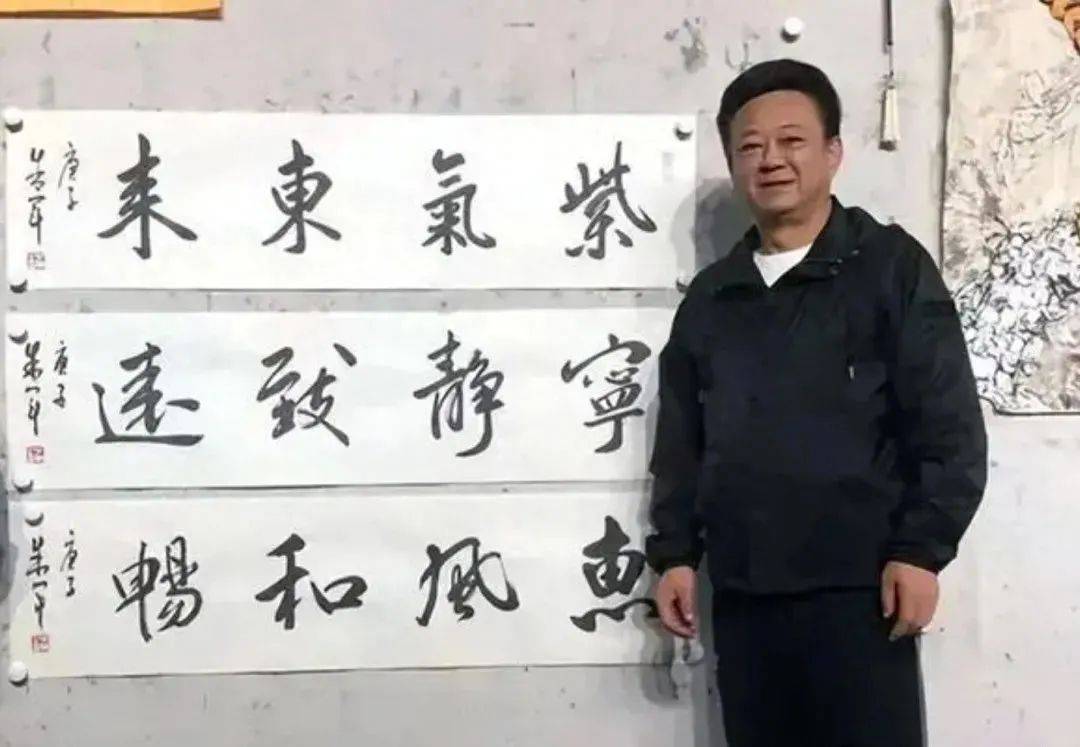 紫氣東来
庚子
朱军
寧静致遠
庚子
朱军
惠風和暢
庚子
朱军